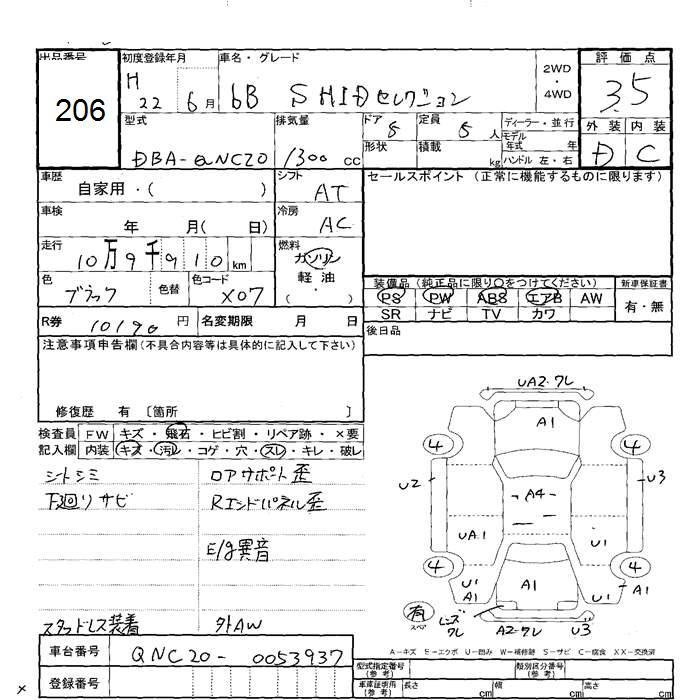 出品番号
206
初度登録年月
H 22 6月
車名・グレード
bB S HIDセレクション
2WD
・
4WD
評価点
3.5
外装 内装
D C
型式
DBA-QNC20
排気量
1300 cc
ドア 5
定員 5 人
形状
積載 kg
ディーラー・並行
モデル年式 年
ハンドル 左・右
車歴
自家用・( )
シフト
AT
セールスポイント(正常に機能するものに限ります)
車検
年 月( 日)
冷房
AC
走行
10万9千910km
燃料
ガソリン
軽油
( ・ )
色
ブラック
色替
色コード
X07
装備品(純正品に限り○をつけてください)
新車保証書
PS PW ABS エアB AW
SR ナビ TV カワ
有・無
R券 10190円
名変期限 月 日
後日品
注意事項申告欄(不具合内容等は具体的に記入して下さい)
修復歴 有 〔箇所 〕
検査員記入欄
FW キズ・飛石・ヒビ割・リペア跡・×要
内装 キズ・汚れ・コゲ・穴・スレ・キレ・破レ
シートシミ
下廻りサビ
ロアサポート歪
Rエンドパネル歪
E/g異音
スタッドレス装着
外AW
UA2・ワレ
A1
4
4
U2
U3
A4
UA1
U1
4
4
U1
A1
A1
U1
A1
有
スペア
レンズワレ
A2・ワレ
U3
A-キズ E-エクボ U-凹み W-補修跡 S-サビ C-腐食 XX-交換済
車台番号
QNC20-0053937
登録番号
型式指定番号(参考)
類別区分番号(参考)
車庫証明用(参考)
長さ cm
幅 cm
高さ cm